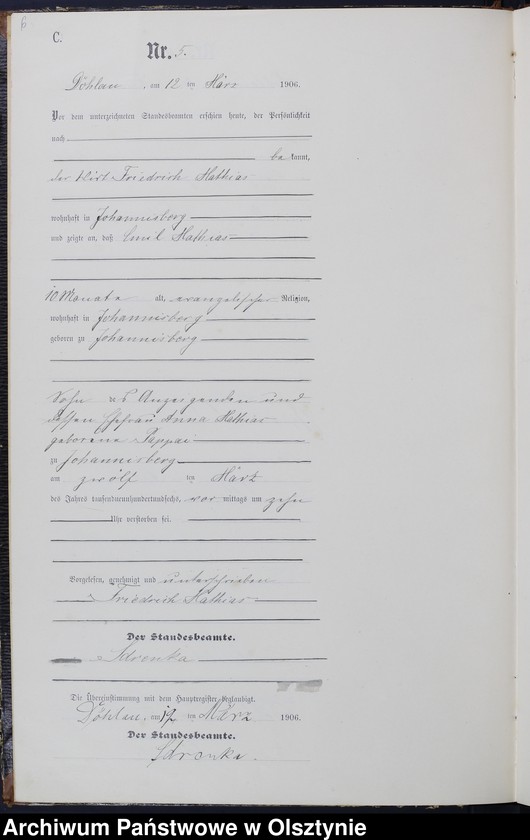 6
C.
Nr. 5.
Döhlau, am 12 ten März 1906.
Vor dem unterzeichneten Standesbeamten erschien heute, der Persönlichkeit
nach
be kannt,
der Wirt Friedrich Mathias
wohnhaft in Johannisberg
und zeigte an, daß Emil Mathias
10 Monate alt, evangelischer Religion,
wohnhaft in Johannisberg
geboren zu Johannisberg
Sohn des Anzeigenden und
dessen Ehefrau Anna Mathias
geborene Pappai
zu Johannisberg
am zwölf ten März
des Jahres tausendneunhundertundsechs, vor mittags um zehn
Uhr verstorben sei.
Vorgelesen, genehmigt und unterschrieben
Friedrich Mathias
Der Standesbeamte.
Sdrenka
Die Übereinstimmung mit dem Hauptregister beglaubigt.
Döhlau, am 12 ten März 1906.
Der Standesbeamte.
Sdrenka.
Archiwum Państwowe w Olsztynie